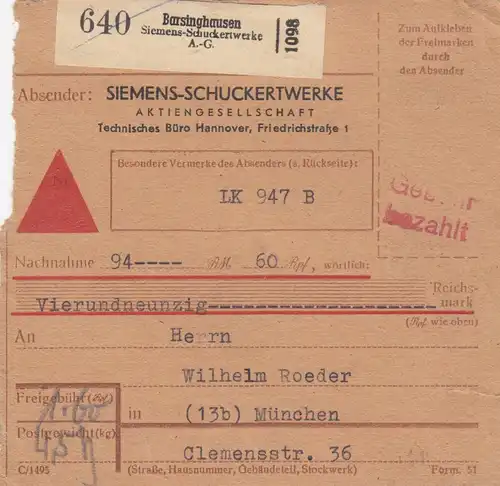 640 Barsinghausen
Siemens-Schuckertwerke
A.-G.
1098
Zum Aufkleben
der Freimarken
durch
den Absender
Absender: SIEMENS-SCHUCKERTWERKE
AKTIENGESELLSCHAFT
Technisches Büro Hannover, Friedrichstraße 1
Besondere Vermerke des Absenders (s. Rückseite):
LK 947 B
bezahlt
Nachnahme 94---- RM 60 Rpf, wörtlich:
Reichs-
Vierundneunzig---------------------- mark
(Rpf. wie oben)
An Herrn
Wilhelm Roeder
Freigebühr (Rpf)
1.60
in (13b) München
Postgewicht (kg)
Clemensstr. 36
C/1495 (Straße, Hausnummer, Gebäudeteil, Stockwerk) Form. 51